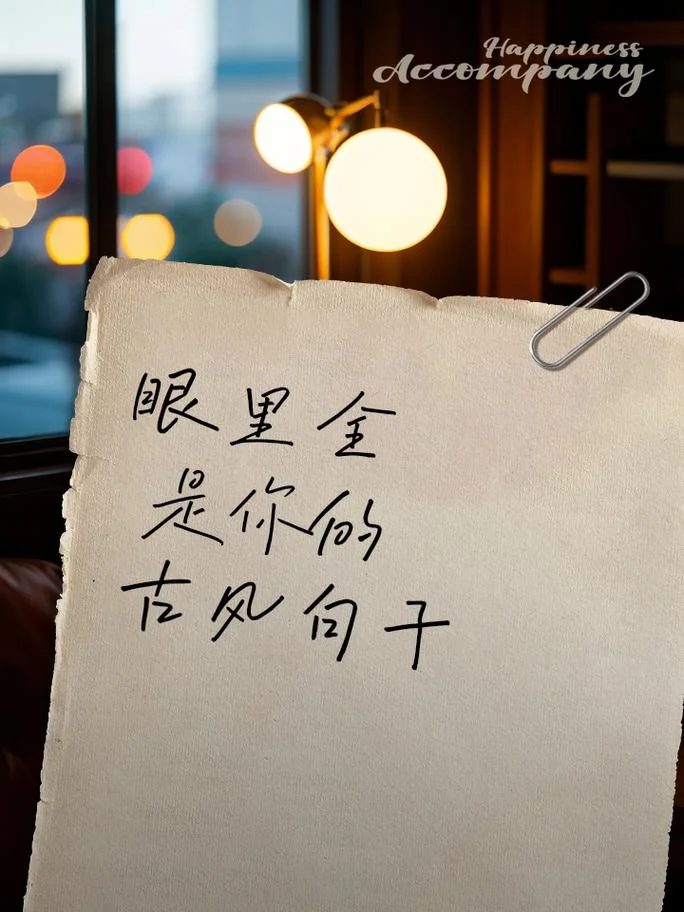 Happiness
Accompany
眼里全
是你的
古风句子